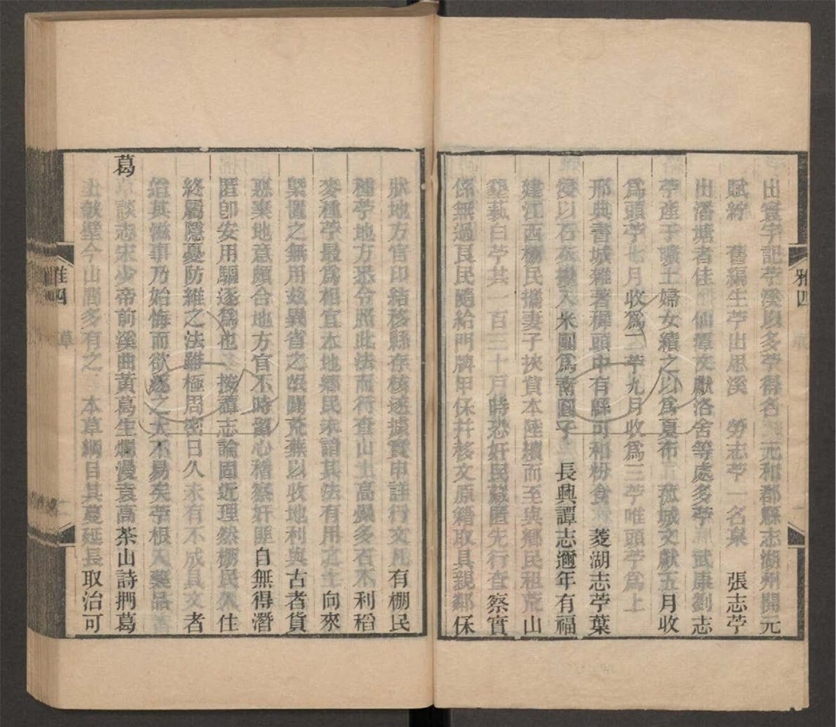 出寰宇記苧溪以多苧得名 元和郡縣志湖州開元
賦紵 舊編生苧出思溪 勞志苧 名枲 張志苧
出潘塘者佳 仙潭文獻洛舍等處多苧 武康劉志
苧產于曠土婦女績之以爲夏布 菰城文獻五月收
爲頭苧七月收爲二苧九月收爲三苧唯頭苧爲上
邢典書城雜著稗頭中有縣可和粉食 菱湖志苧葉
浸以石灰攙入米團爲南圓子 長興譚志邇年有福
建江西棚民攜妻子挾貲本陸續而至與鄉民租荒山
墾蓺白苧其 百三十戸時恐奸民竄匿先行查察實
係無過良民隨給門牌甲保幷移文原籍取具親鄰保
狀地方官印結移縣存核遂據實申詳行文凡有棚民
種苧地方悉令照此法而行查山土高燥多石不利稻
麥種苧最爲相宜本地鄉民未諳其法有用之土向來
棄置之無用茲異省之 開荒蕪以收地利與古者貨
惡棄地意頗合地方官不時留心稽察奸匪自無得潛
匿卽安用驅逐爲也 按譚志論固近理然棚民久住
終屬隱憂防維之法雖極周密日久未有不成具文者
給其滋事乃始悔而欲逐之大不易矣苧根入藥品
葛 談志宋少帝前溪曲黃葛生爛漫袁高茶山詩捫葛
上欹壁今山間多有之 本草綱目其蔓延長取治可
雅四